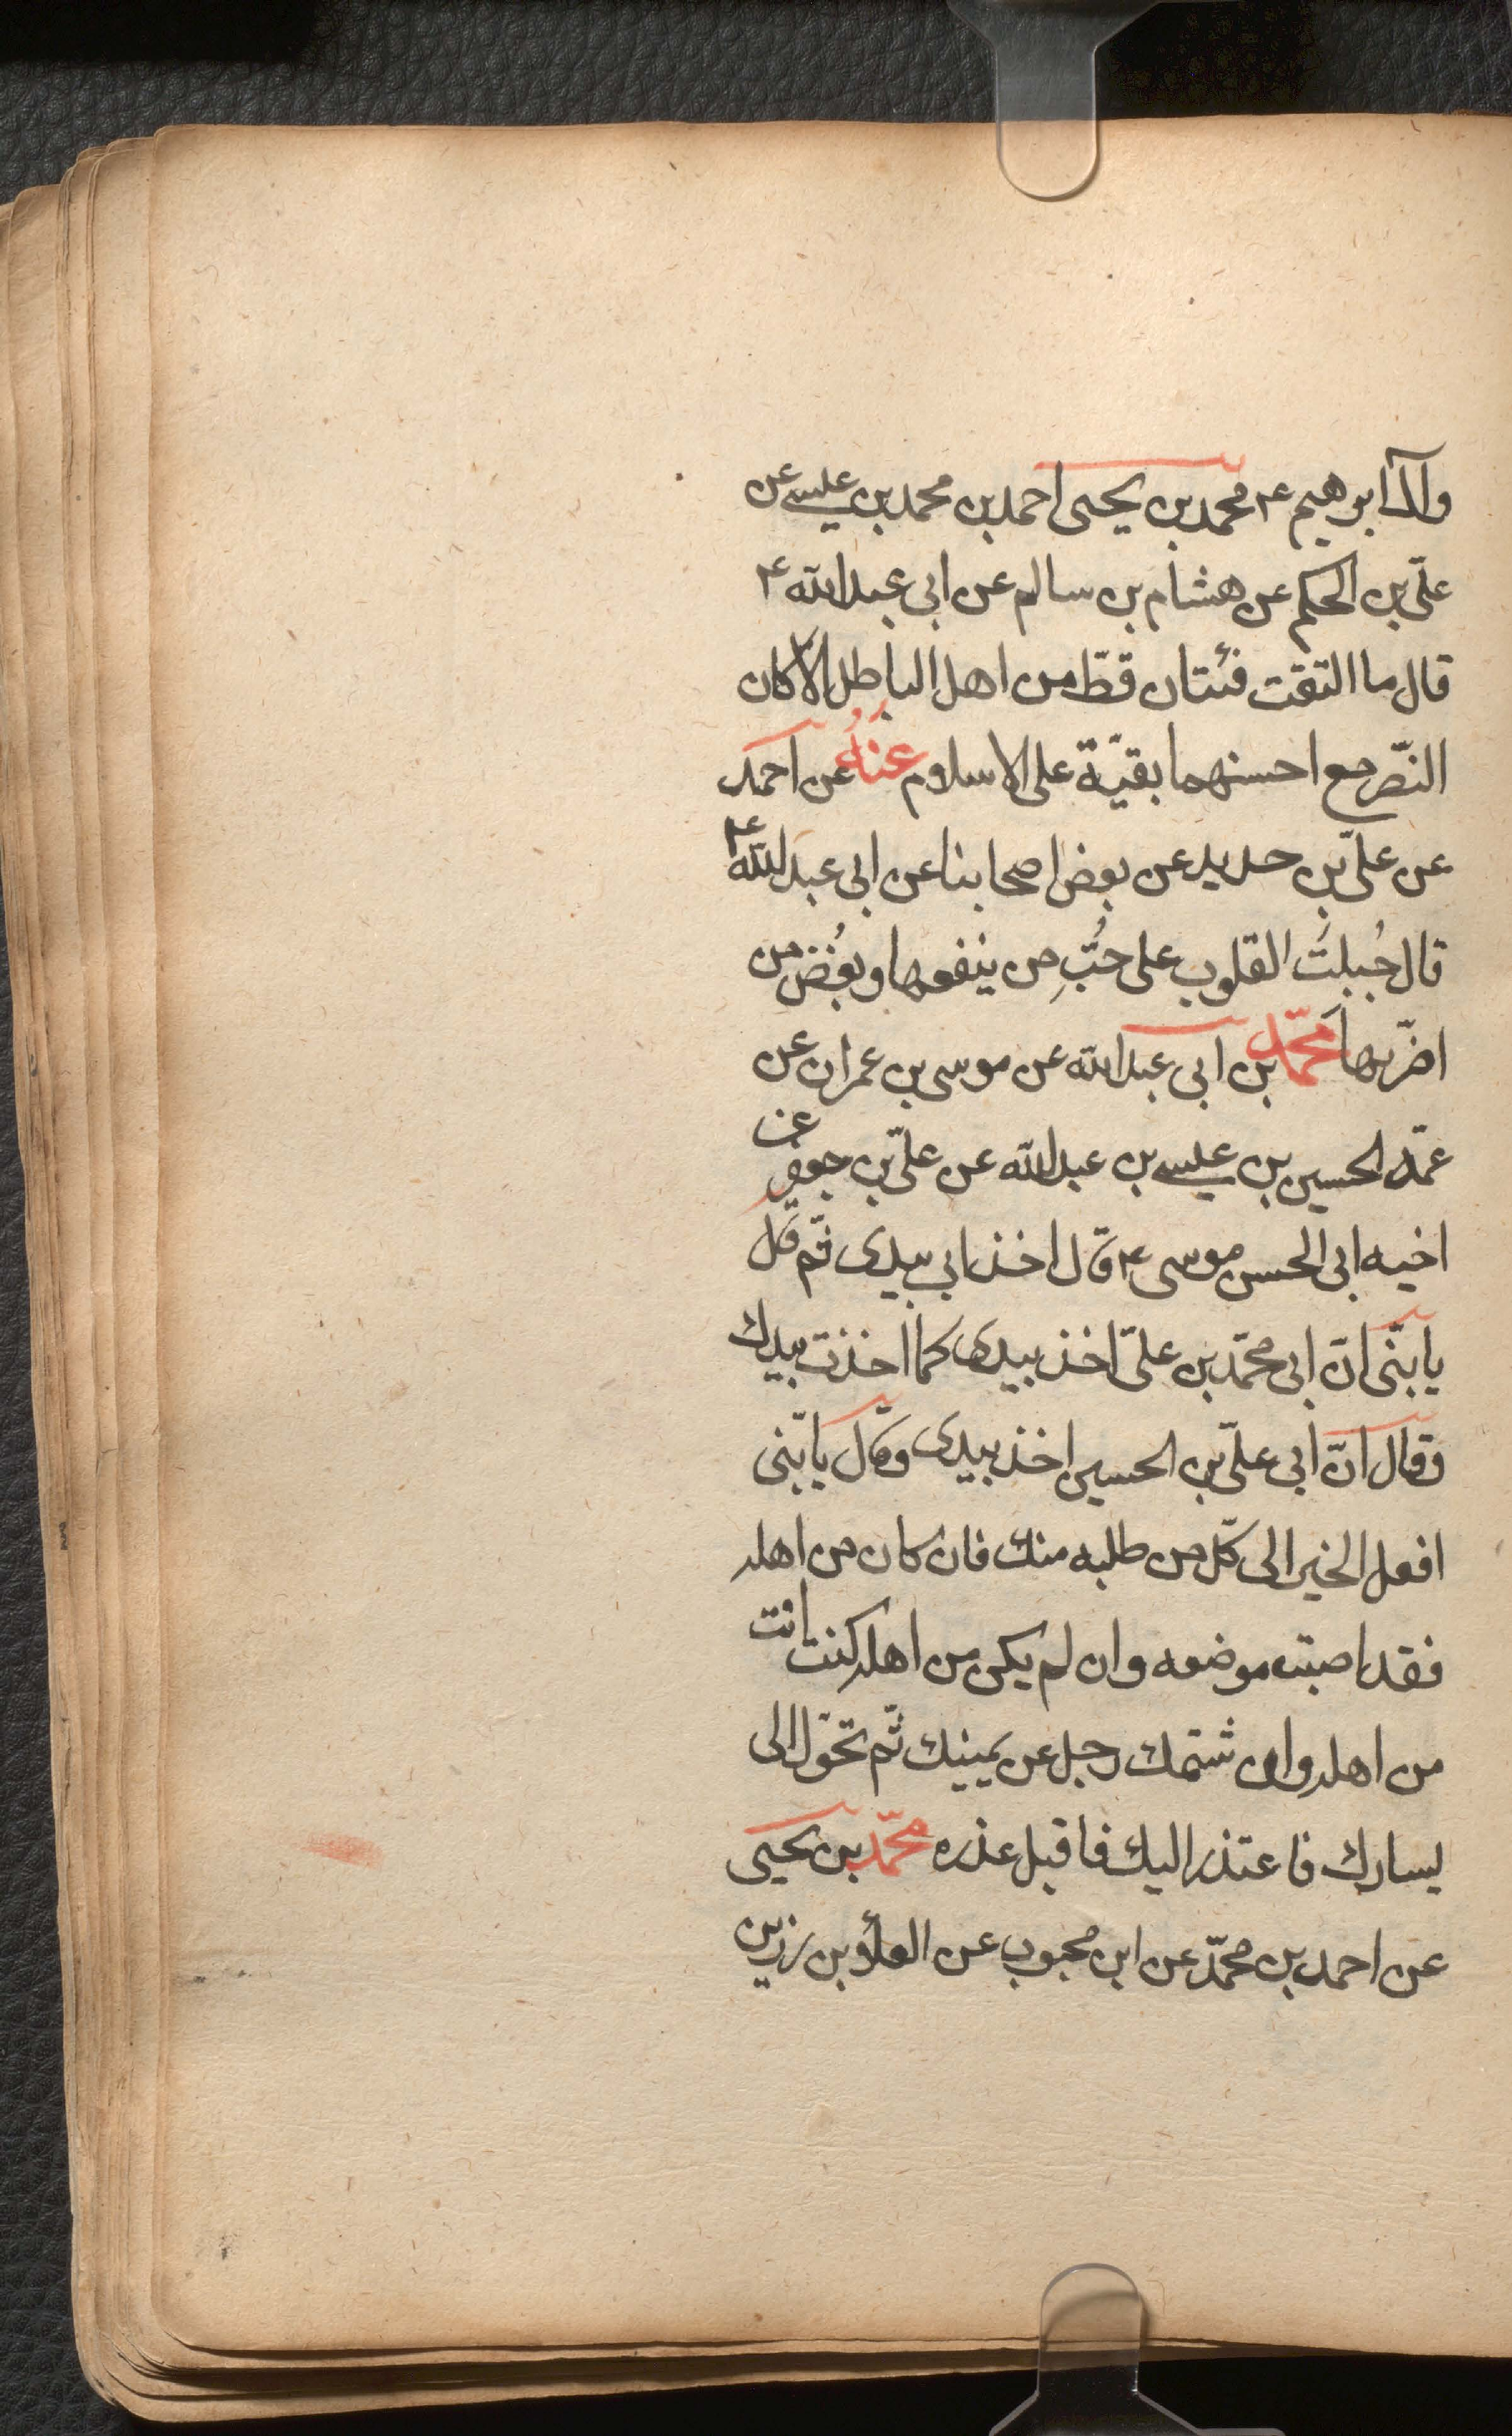 وآل ابرهيم ع محمد بن يحيى احمد بن محمد بن عيسى عن
علىّ بن الحكم عن هشام بن سالم عن ابى عبد الله ع
قال ما التقت فئتان قطّ من اهل الباطل الا كان
النّصر مع احسنهما بقيّة على الاسلام عنهُ عن احمد
عن علىّ بن حديد عن بعض اصحابنا عن ابى عبد الله ع
قال جُبلت القلوب على حُبِّ من ينفعها وبُغض من
اضرّ بها محمّد بن ابى عبد الله عن موسى بن عمران عن
عمّه الحسين بن عيسى بن عبد الله عن علىّ بن جعفر عن
اخيه ابى الحسن موسى ع قال اخذ ابى بيدى ثم قال
يا بنّى انّ ابى محمّد بن علىّ اخذ بيدى كما اخذت بيدك
وقال انّ ابى علىّ بن الحسين اخذ بيدى وقال يا بنّى
افعل الخير الى كلّ من طلبه منك فان كان من اهله
فقد اصبت موضعه وان لم يكن من اهله كنت انت
من اهله وان شتمك رجل عن يمينك ثم تحوّل الى
يسارك فاعتذر اليك فاقبل عذره محمّد بن يحيى
عن احمد بن محمّد عن ابن محبوب عن العلاء بن رزين